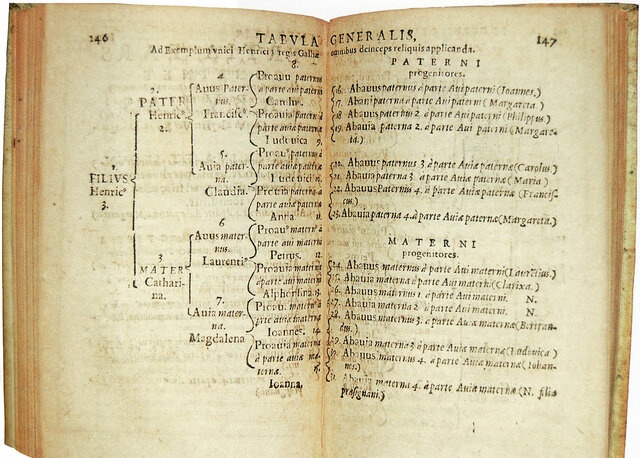 146
TABVLA GENERALIS,
147
Ad Exemplum vnici Henrici 3 regis Galliæ omnibus deinceps reliquis applicanda.
1.
FILIVS
Henricꝰ
3.
2.
PATER
Henricꝰ
2.
3
MATER
Cathari-
na.
4.
Auus Pater-
nus.
Franciscꝰ.
5.
Auia pater-
na.
Claudia.
6
Auus mater-
nus.
Laurentiꝰ.
7.
Auia mater-
na.
Magdalena
8.
Proauꝰ paternus
à parte aui paterni
Carolus.
Proauia paterna
à parte aui paterni
Ludouica 9.
Proauꝰ paternꝰ à
parte auiæ paternæ
Ludouici
Proauia paterna à
parte auiæ paternæ
Anna
Proauꝰ maternꝰ
à parte aui materni
Petrus. 12.
Proauia materna
à parte aui materni
Alphonsina
Proauꝰ maternꝰ
à parte auiæ maternæ
Ioannes. 14.
Proauia materna
à parte auiæ ma-
ternæ.
Ioanna.
PATERNI
progenitores.
16. Abauus paternus à parte Aui paterni (Ioannes.)
17. Abaui paterna à parte Aui paterni (Margareta.)
18 Abauus paternus 2. à parte Aui paterni (Philippus.)
19. Abauia paterna 2. à parte Aui paterni (Margare-
ta.)
Abauus paternus 3. à parte Auiæ paternæ (Carolus.)
Abauia paterna 3. à parte Auiæ paternæ (Maria)
22. Abauus Paternus 4. à parte Auiæ paternæ (Francis-
cus.)
23. Abauia paterna 4. à parte Auiæ paternæ (Margareta.)
MATERNI
progenitores.
24. Abauus maternus à parte Aui materni (Laurētius.)
Abauia materna à parte Aui materni (Clarixa.)
Abauus maternus à parte Aui materni. N.
27. Abauia materna 2. à parte Aui materni. N.
28 Abauus maternus 3. à parte Auiæ maternæ (Bertran-
dus.)
Abauia materna 3 à parte Auiæ maternæ (Ludouica)
Abauus maternus 4. à parte Auiæ maternæ (Iohan-
nes.)
Abauia materna 4. à parte Auiæ maternæ (N. filia